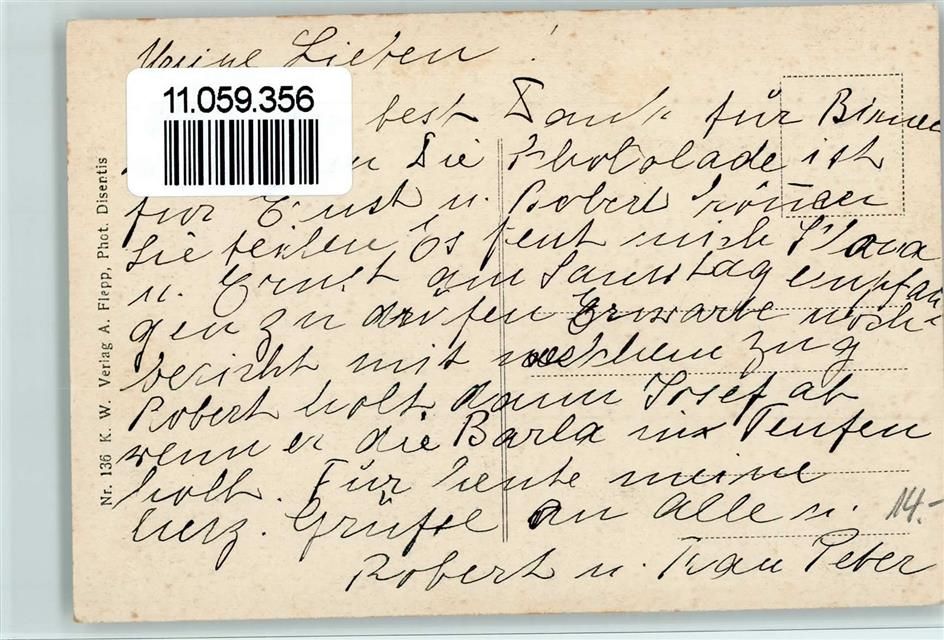 Meine Lieben!
11.059.356
best Dank für Birnen
Die Schokolade ist
für Ernst u. Robert können
sie teilen Es freut mich
u. Ernst am Samstag empfan
gen zu dürfen Erwarte noch
bericht mit welchem Zug
Robert holt dann Josef ab
wenn er die Barla in Teufen
holt. Für heute meine
herz. Grüsse an Alle u.
14.-
Robert u. Frau Peter
Nr. 136 K. W. Verlag A. Flepp, Phot. Disentis